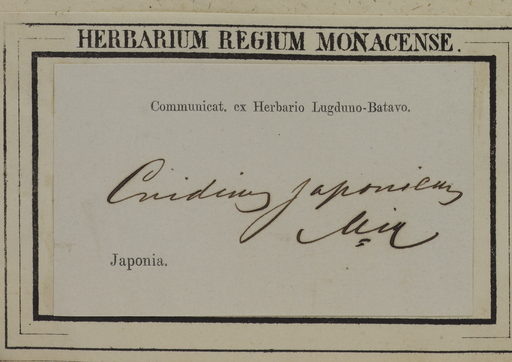 HERBARIUM REGIUM MONACENSE.
Communicat. ex Herbario Lugduno-Batavo.
Cnidium japonicum
Miq
Japonia.